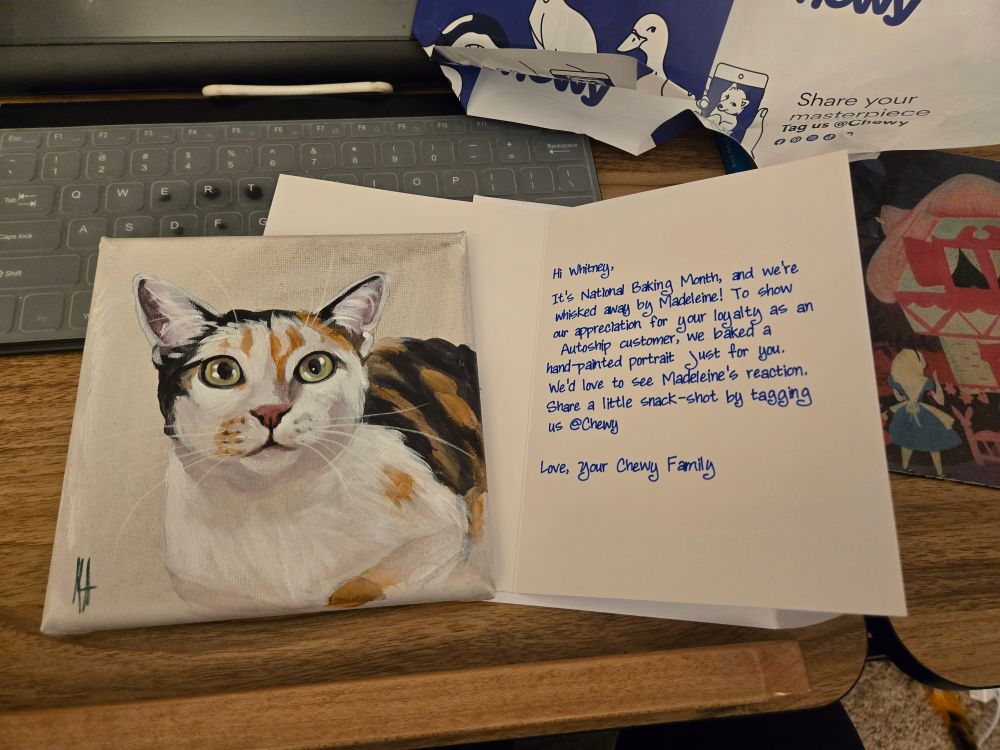 Chewy
Chewy
Share your
masterpiece
Tag us @Chewy
Esc F1 F2 F3 F4 F5 F6 F7 F8 F9 F10 F11
~ ! @ # $ % ^ & * ( ) - + Backspace
1 2 3 4 5 6 7 8 9 0 =
Tab Q W E R T I O P
Caps lock A S D F G
Shift
Fn
Hi Whitney,
It's National Baking Month, and we're
whisked away by Madeleine! To show
our appreciation for your loyalty as an
Autoship customer, we baked a
hand-painted portrait just for you.
We'd love to see Madeleine's reaction.
Share a little snack-shot by tagging
us @Chewy
Love, your Chewy Family
KH